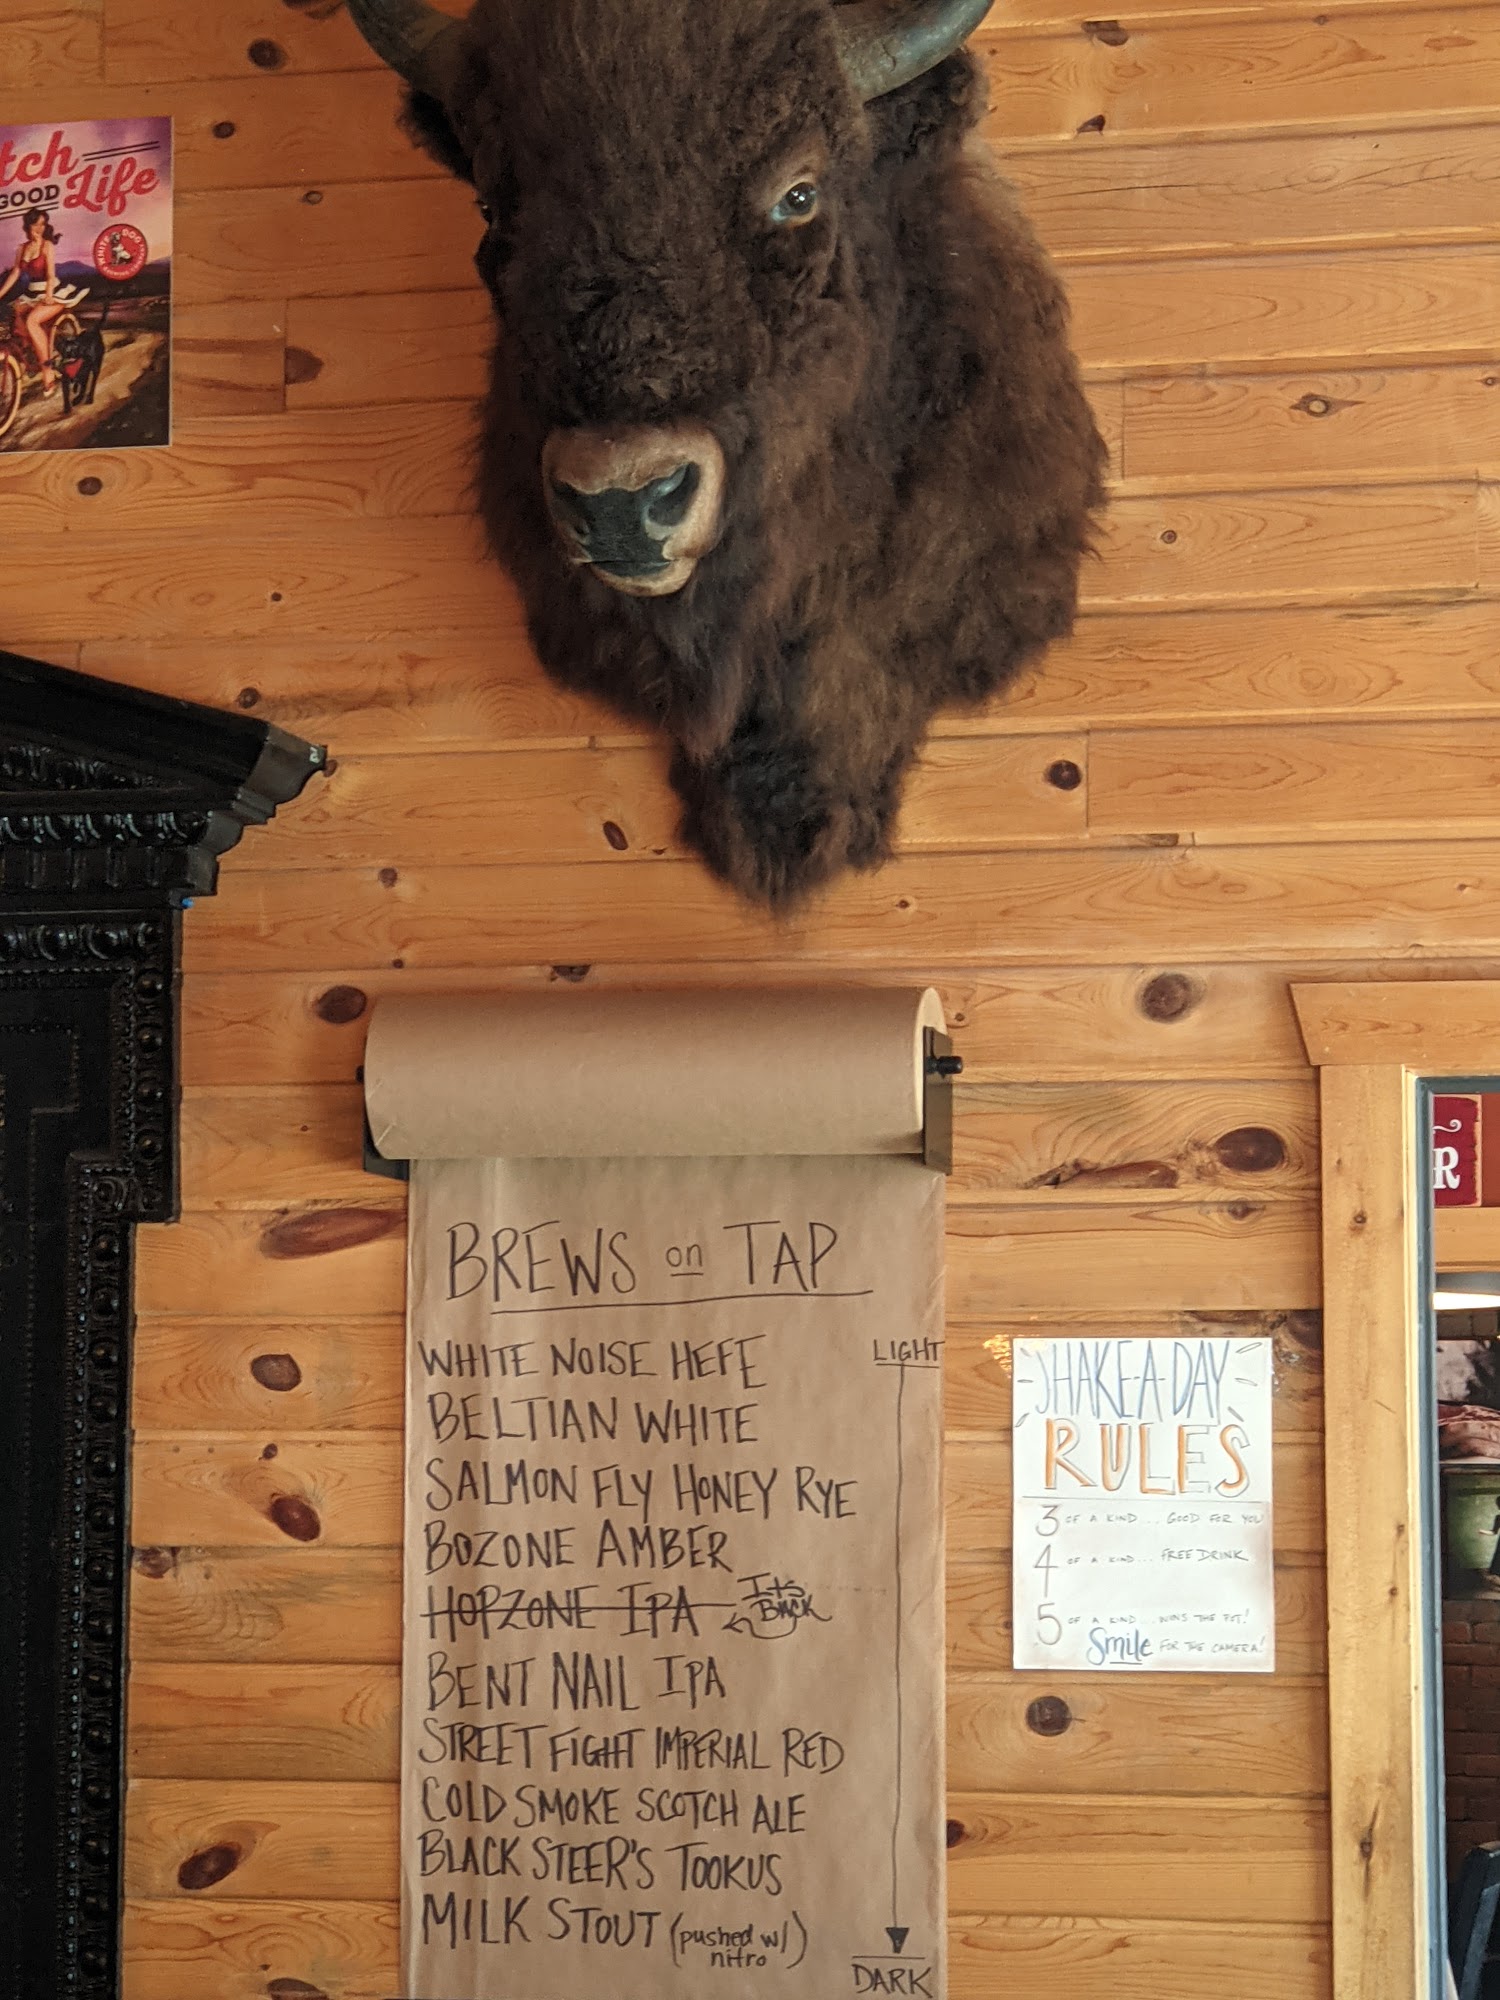 tch
GOOD Life
WHITE DOG
BREWING COMPANY
BREWS on TAP
LIGHT
WHITE NOISE HEFE
BELTIAN WHITE
SALMON FLY HONEY RYE
BOZONE AMBER
HOPZONE IPA ITS BACK
BENT NAIL IPA
STREET FIGHT IMPERIAL RED
COLD SMOKE SCOTCH ALE
BLACK STEER'S TOOKUS
MILK STOUT (pushed w/)
nitro
DARK
SHAKE-A-DAY
RULES
3 OF A KIND... GOOD FOR YOU
4 OF A KIND... FREE DRINK
5 OF A KIND... WINS THE POT!
Smile FOR THE CAMERA!
R